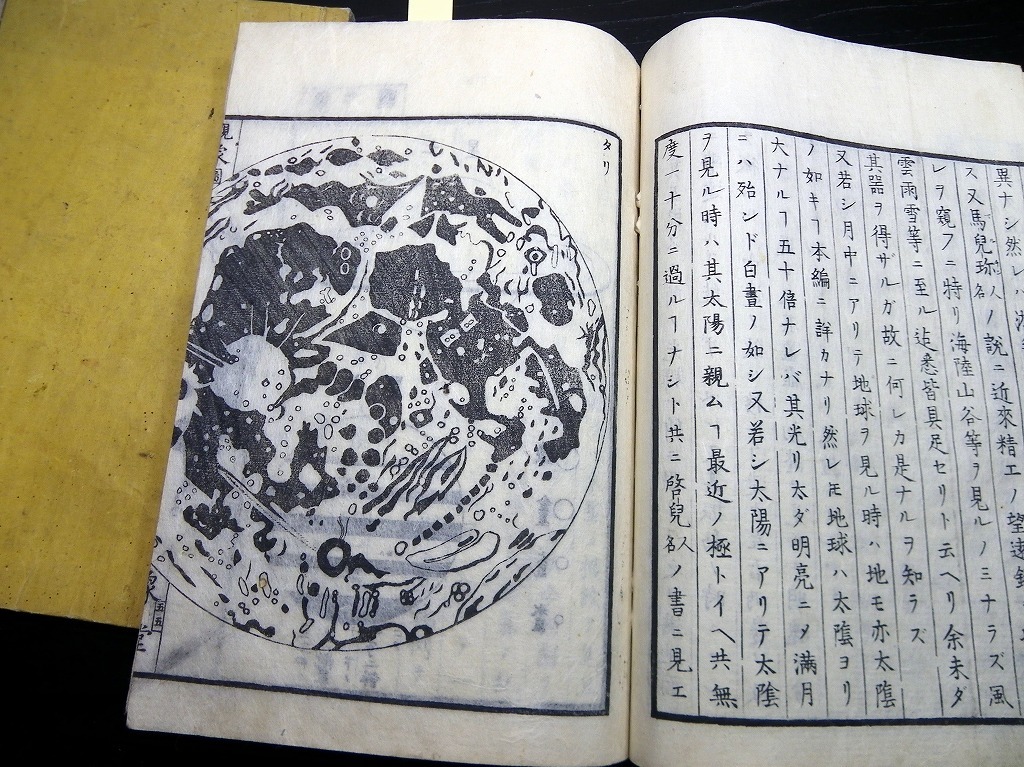 異ナシ然レハ
ス又馬兒珎人名ノ説ニ近來精エノ望遠鏡
レヲ窺フニ特リ海陸山谷等ヲ見ルノミナラズ風
雲雨雪等ニ至ル迠悉皆具足セリト云ヘリ余未ダ
其噐ヲ得ザルガ故ニ何レカ是ナルヲ知ラズ
又若シ月中ニアリテ地球ヲ見ル時ハ地モ亦太陰
ノ如キヿ本編ニ詳カナリ然レ𪜈地球ハ太陰ヨリ
大ナルヿ五十倍ナレバ其光リ太ダ明亮ニメ滿月
ニハ殆ンド白晝ノ如シ又若シ太陽ニアリテ太陰
ヲ見ル時ハ其太陽ニ親ムヿ最近ノ極トイヘ共無
度一十分ニ過ルヿナシト共ニ啓兒人名ノ書ニ見エ
タリ